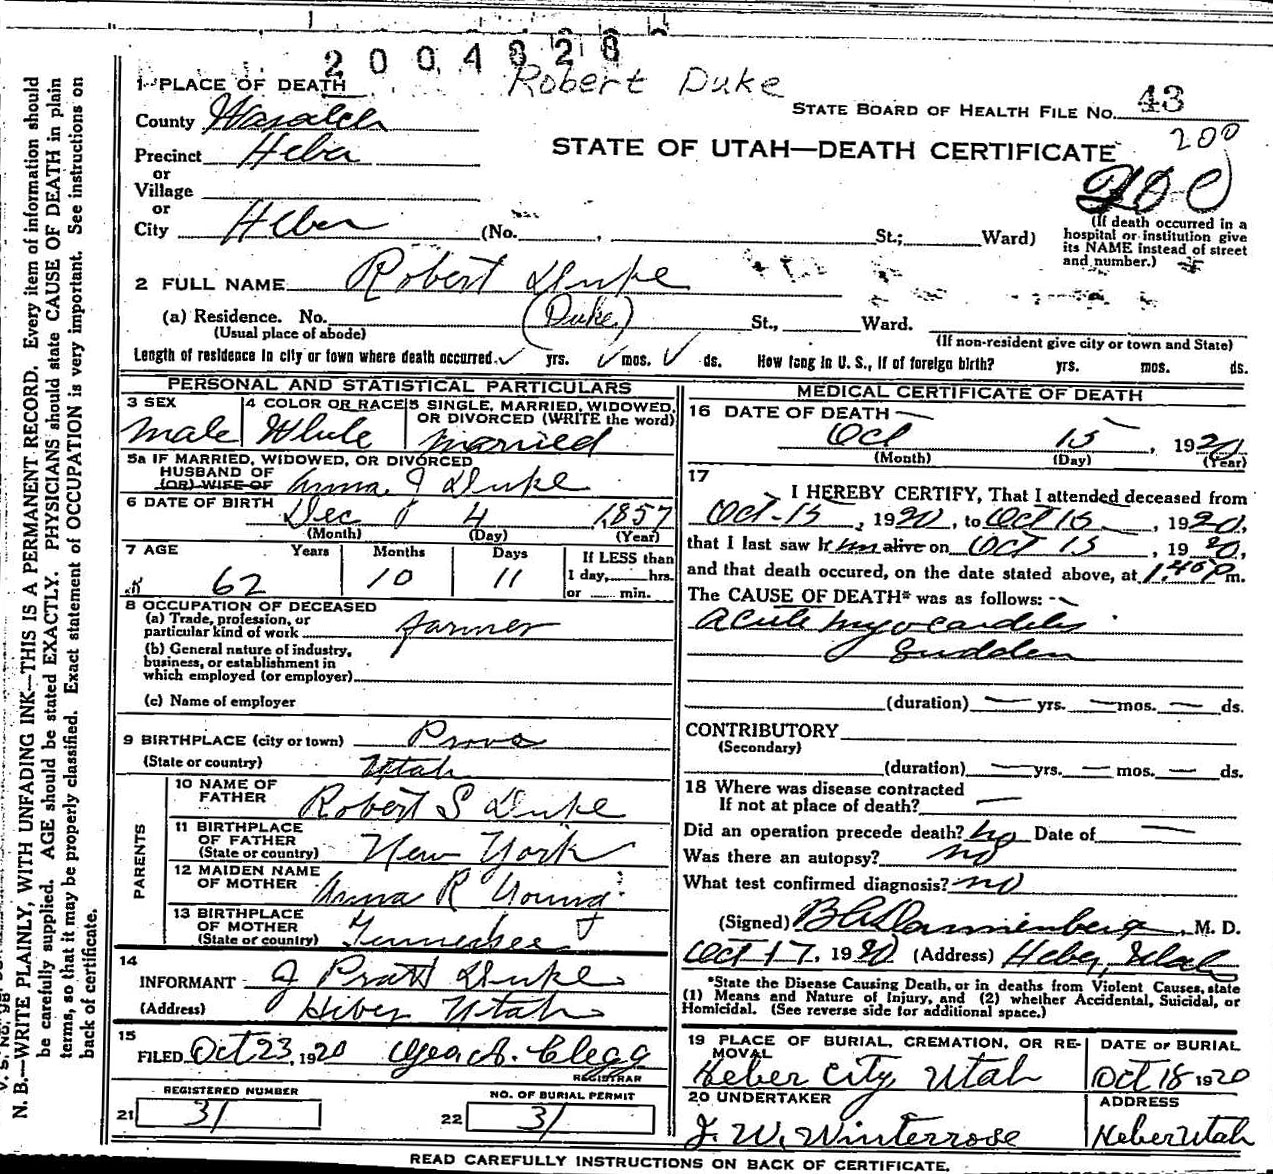 2004828
Robert Duke
1 PLACE OF DEATH
STATE BOARD OF HEALTH FILE No. 43
County Wasatch
200
Precinct Heber
STATE OF UTAH—DEATH CERTIFICATE
or
Village
200
or
City Heber (No. , St.; Ward)
(If death occurred in a
hospital or institution give
its NAME instead of street
and number.)
2 FULL NAME Robert Duke
(a) Residence. No. (Duke) St., Ward.
(Usual place of abode)
(If non-resident give city or town and State)
Length of residence in city or town where death occurred. ✓ yrs. ✓ mos. ✓ ds. How long in U. S., if of foreign birth? yrs. mos. ds.
PERSONAL AND STATISTICAL PARTICULARS
3 SEX
Male
4 COLOR OR RACE
White
5 SINGLE, MARRIED, WIDOWED,
OR DIVORCED (WRITE the word)
Married
5a IF MARRIED, WIDOWED, OR DIVORCED
HUSBAND OF
(OR) WIFE OF Anna J Duke
6 DATE OF BIRTH
Dec 4 1857
(Month) (Day) (Year)
7 AGE Years Months Days If LESS than
1 day, hrs.
62 10 11 or min.
8 OCCUPATION OF DECEASED
(a) Trade, profession, or
particular kind of work farmer
(b) General nature of industry,
business, or establishment in
which employed (or employer)
(c) Name of employer
9 BIRTHPLACE (city or town) Provo
(State or country) Utah
PARENTS
10 NAME OF
FATHER Robert S Duke
11 BIRTHPLACE
OF FATHER
(State or country) New York
12 MAIDEN NAME
OF MOTHER Anna R Young
13 BIRTHPLACE
OF MOTHER
(State or country) Tennessee
14
INFORMANT J Pratt Duke
(Address) Heber Utah
15
FILED Oct 23, 1920 Geo A. Clegg
REGISTRAR
REGISTERED NUMBER
21 31
NO. OF BURIAL PERMIT
22 31
MEDICAL CERTIFICATE OF DEATH
16 DATE OF DEATH
Oct 15, 1920
(Month) (Day) (Year)
17
I HEREBY CERTIFY, That I attended deceased from
Oct-15, 1920, to Oct 15, 1920,
that I last saw him alive on Oct 15, 1920,
and that death occured, on the date stated above, at 1.45 P m.
The CAUSE OF DEATH* was as follows:
Acute Myocarditis
Sudden
(duration) — yrs. — mos. — ds.
CONTRIBUTORY
(Secondary)
(duration) — yrs. — mos. — ds.
18 Where was disease contracted
If not at place of death? —
Did an operation precede death? No Date of —
Was there an autopsy? no
What test confirmed diagnosis? no
(Signed) Dannenberg, M. D.
Oct 17, 1920 (Address) Heber, Utah
*State the Disease Causing Death, or in deaths from Violent Causes, state
(1) Means and Nature of Injury, and (2) whether Accidental, Suicidal, or
Homicidal. (See reverse side for additional space.)
19 PLACE OF BURIAL, CREMATION, OR RE-
MOVAL
Heber City, Utah
DATE OF BURIAL
Oct 18 1920
20 UNDERTAKER
J. W. Winterrose
ADDRESS
Heber Utah
READ CAREFULLY INSTRUCTIONS ON BACK OF CERTIFICATE.
N. B.—WRITE PLAINLY, WITH UNFADING INK—THIS IS A PERMANENT RECORD. Every item of information should
be carefully supplied. AGE should be stated EXACTLY. PHYSICIANS should state CAUSE OF DEATH in plain
terms, so that it may be properly classified. Exact statement of OCCUPATION is very important. See instructions on
back of certificate.